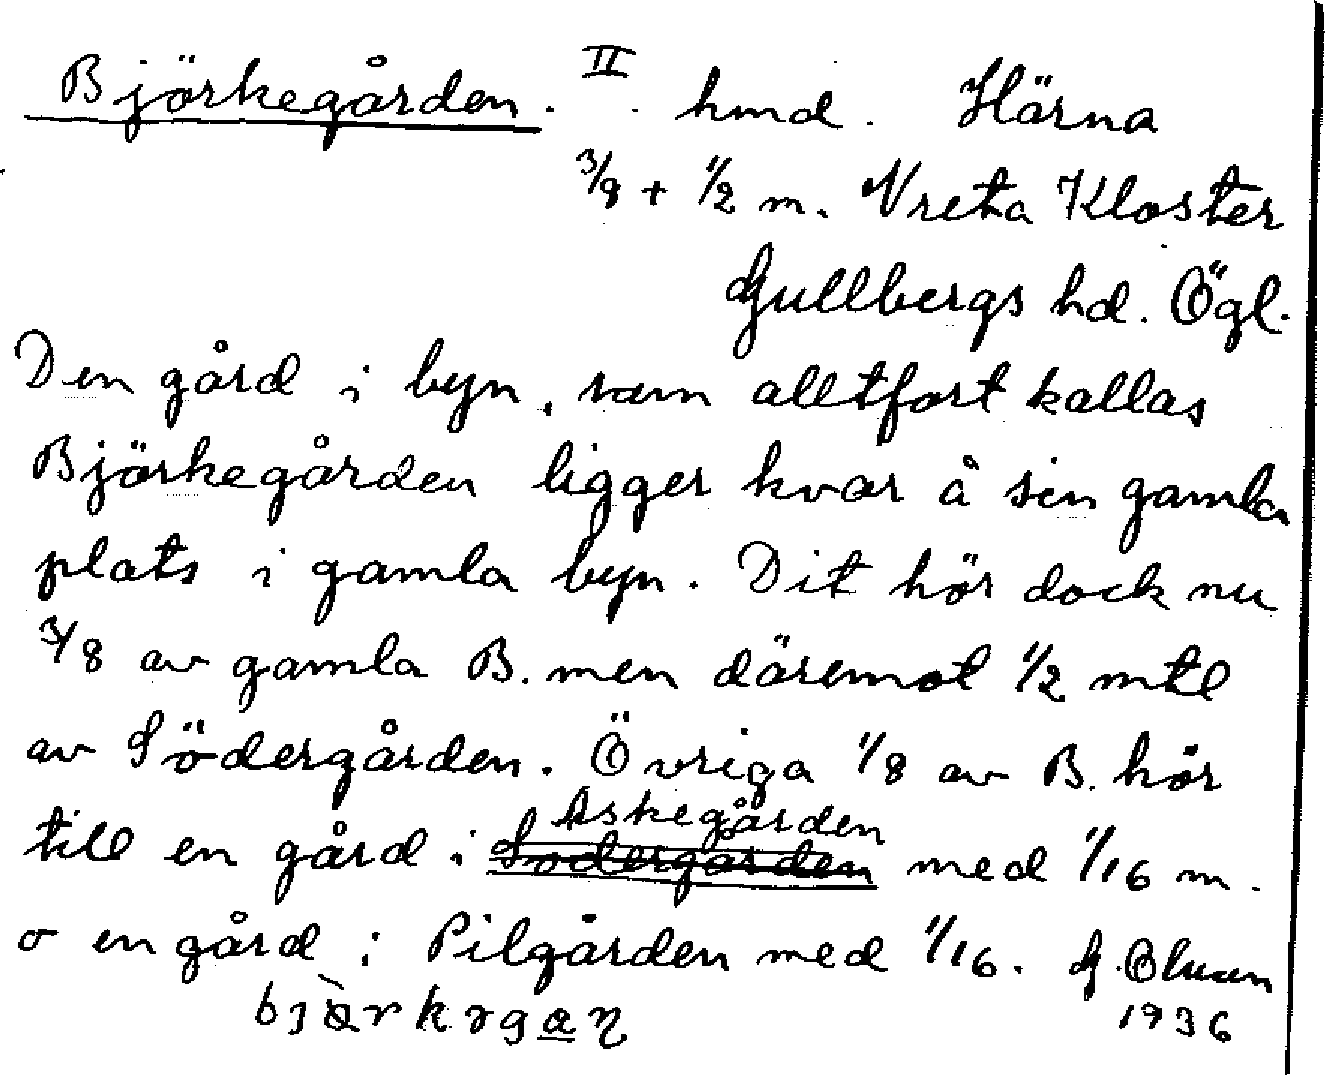 Björkegården. II. hmd. Härna
3/8 + 1/2 m. Vreta Kloster
Gullbergs hd. Ögl.
Den gård i byn, som alltfort kallas
Björkegården ligger kvar å sin gamla
plats i gamla byn. Dit hör dock nu
3/8 av gamla B. men däremot 1/2 mtl
av Södergården. Övriga 1/8 av B. hör
till en gård i Södergården Askegården med 1/16 m.
o en gård i Pilgården med 1/16. G.
1936